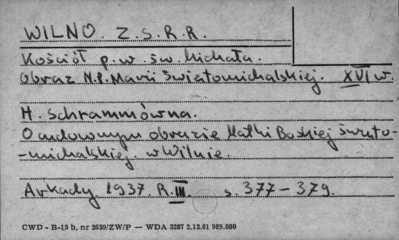 WILNO. Z.S.R.R.
Kościół p.w. św. Michała.
Obraz N.P. Marii Światomichalskiej. XVI w.
H. Schrammówna.
O cudownym obrazie Matki Boskiej Święto-
-michalskiej. w Wilnie.
Arkady 1937. R. III. s. 377 – 379.
CWD - B-15 b, nr 2659/ZW/P — WDA 3287 2.12.61 989.000